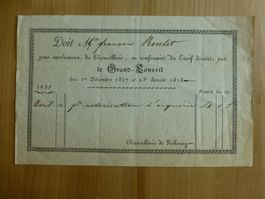 Doit Mr françois Roulet
pour émolumens, de Chancellerie, en conformité du Tarif décrété par
le Grand-Conseil
les 1er Décembre 1817 et 15e Janvier 1818
1831
Avril
pr autorisation d'
Chancellerie de Fribourg